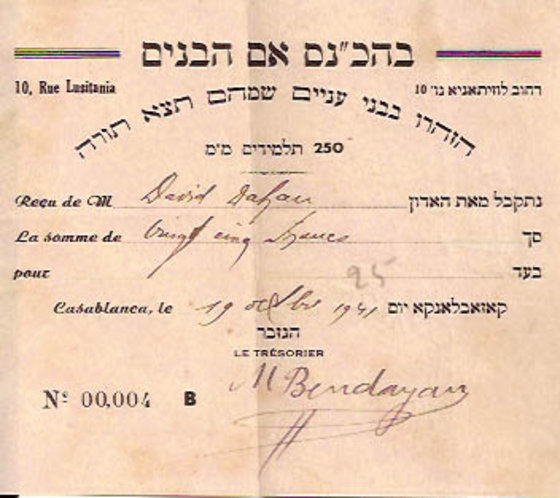 בהכ״נס אם הבנים
10, Rue Lusitania רחוב לוזיתאניא נו׳ 10
הזהרו בבני עניים שמהם תצא תורה
250 תלמידים מ״מ
Reçu de M David Dahan נתקבל מאת האדון
La somme de Vingt cinq francs סך
pour 25 בעד
Casablanca, le 19 octobre 1941 קאזאבלאנקא יום
הגזבר
LE TRÉSORIER
M Bendayan
Nº 00,004 B